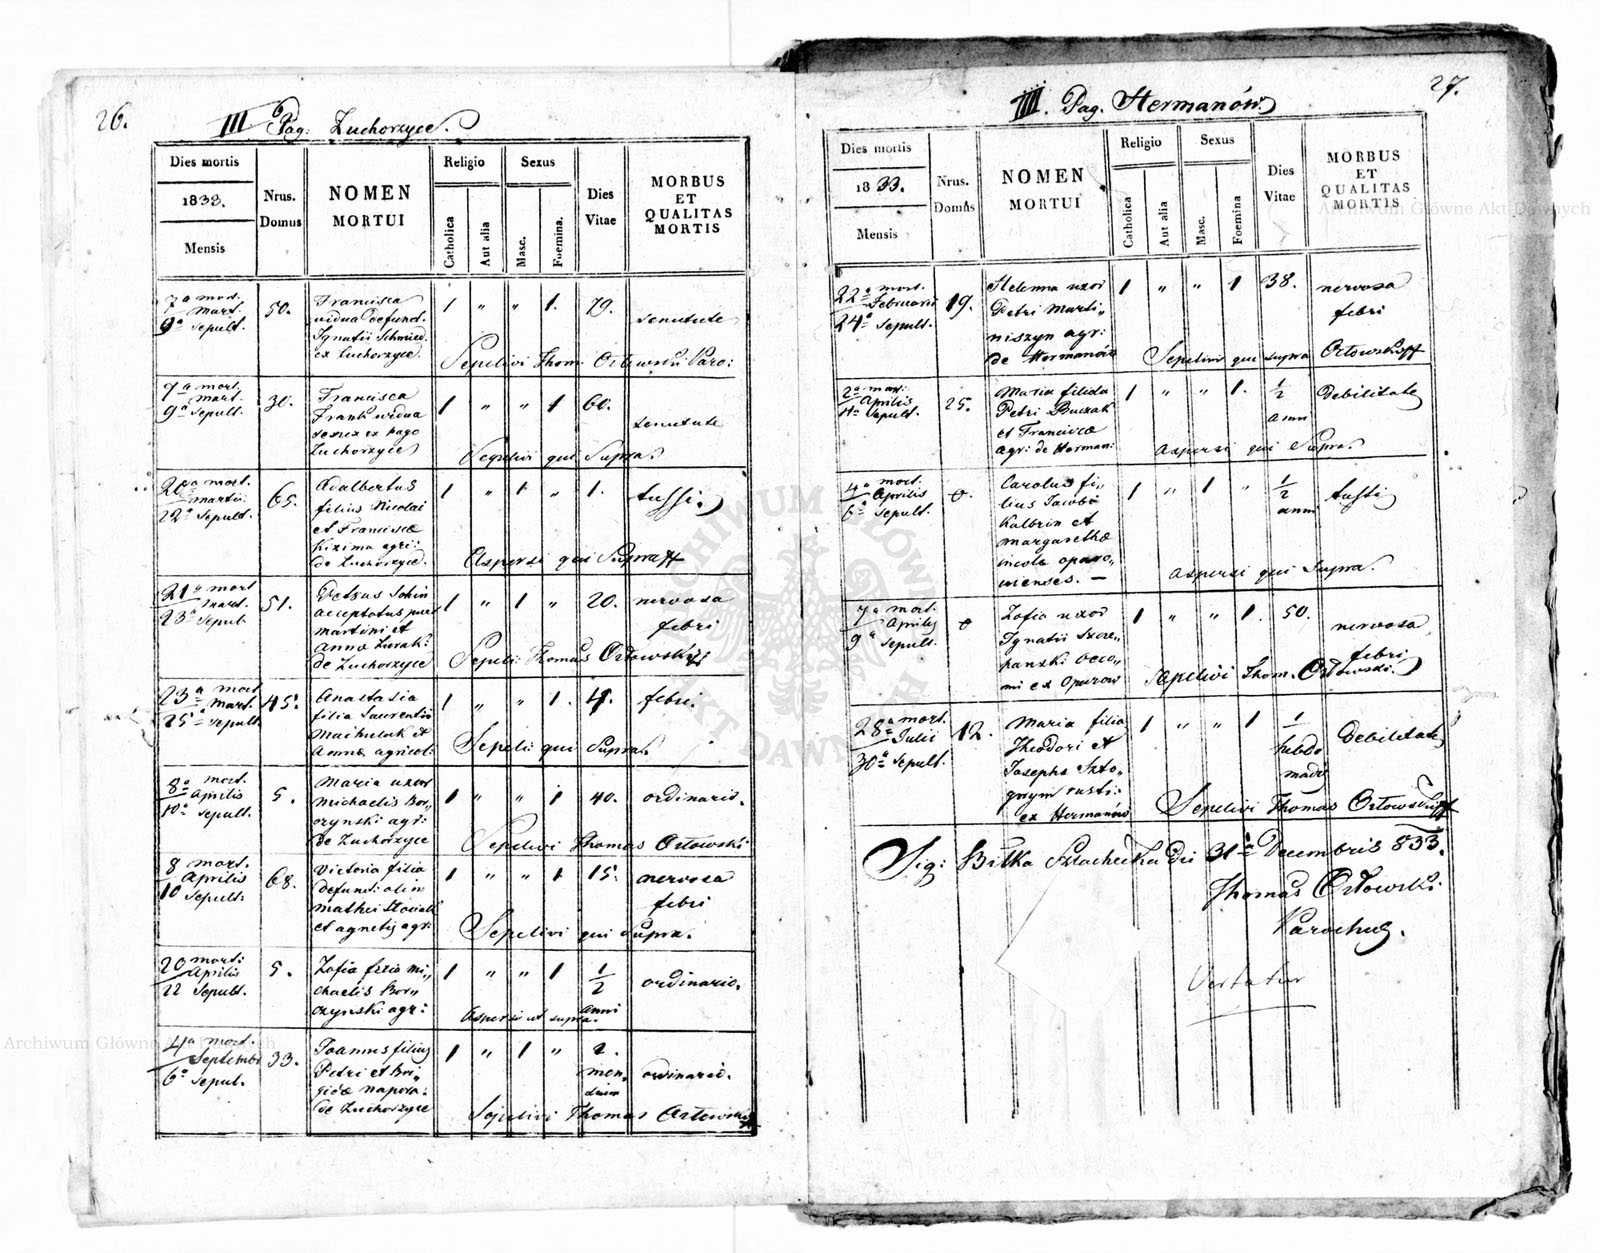 26.
III Pag: Zuchorzyce.
Dies mortis
1833.
Mensis
Nrus.
Domus
NOMEN
MORTUI
Religio
Catholica
Aut alia
Sexus
Masc.
Foemina.
Dies
Vitae
MORBUS
ET
QUALITAS
MORTIS
7a mort.
Mart.
9a Sepult.
50.
Francisca
vidua defunct.
Ignatii Schmied
ex Zuchorzyce.
1 " " 1. 79.
senectute
Sepelivi Thom. Orłowski Paro:
7a mort.
Mart.
9a Sepult.
30.
Francisca
vidua
ex pago
Zuchorzyce
1 " " 1 60.
senectute
Sepelivi qui Supra.
20a mort.
Martii
22a Sepult.
65.
Adalbertus
filius Nicolai
et Franciscæ
Kizima agri:
de Zuchorzyce.
1 " 1 " 1.
tussi.
Aspersi qui Supra
21a mort.
Mart.
23a Sepult.
51.
acceptatus puer
Martini et
Annæ
de Zuchorzyce
1 " 1 " 20.
nervosa
febri
Sepeli: Thomas Orłowski
23a mort.
Mart.
25a Sepult.
45.
Anastasia
filia Laurentii
et
Annæ agricol:
1 " " 1. 4.
febri.
Sepeli: qui Supra.
8a mort.
Aprilis
10a Sepult.
5.
Maria uxor
Michaelis Bor„
czynski agr:
de Zuchorzyce
1 " " 1 40.
ordinario.
Sepelivi Thomas Orłowski
8 mort.
Aprilis
10 Sepult.
68.
Victoria filia
defunct: olim
Mathei
et Agnetis agr:
1 " " 1 15.
nervosa
febri
Sepelivi qui Supra.
20 mort:
Aprilis
22 Sepult.
5.
Zofia filia Mi„
chaelis Bor„
czynski agr:
1 " " 1 1/2
anni
ordinario.
Aspersi ut supra.
4a mort.
Septemb:
6a Sepul.
33.
Joannes filius
Petri et Bri„
gidæ Napora:
de Zuchorzyce
1 " 1 " 2.
men„
sium
ordinario.
Sepelivi Thomas Orłowski
27.
IIII. Pag. Hermanów.
Dies mortis
1833.
Mensis
Nrus.
Domûs
NOMEN
MORTUI
Religio
Catholica
Aut alia
Sexus
Masc.
Foemina
Dies
Vitae
MORBUS
ET
QUALITAS
MORTIS
22a mort.
Februarii
24a Sepult.
19.
Helenna uxor
Petri Marti„
niszyn agr:
de Hermanów
1 " " 1 38.
nervosa
febri
Sepelivi qui supra Orłowski
2a mort:
Aprilis
4a Sepult.
25.
Maria filia
Petri Buczak
et Franciscæ
agr: de Herman:
1 " " 1. 1/2
anni
Debilitate
Aspersi qui Supra.
4a mort.
Aprilis
6a Sepult.
0.
Carolus fi„
lius Jacobi
Kalbrin et
Margarethæ
incolæ oparo„
wienses. —
1 " 1 " 1/2
anni
tussi
Aspersi qui Supra.
7a mort.
Aprilis
9a Sepult.
0
Zofia uxor
Ignatii Szcze„
panski oeco„
mi ex Oparow
1 " " 1. 50.
nervosa
febri
Sepelivi Thom. Orłowski.
28a mort.
Julii
30a Sepult.
12.
Maria filia
Theodori et
Josephæ Szto„
gryn rusti:
ex Hermanów
1 " " 1 1
hebdo
madæ
Debilitate
Sepelivi Thomas Orłowski
Sig: Biłka Szlachecka die 31a Decembris 833.
Thomas Orłowski
Parochus.
Vertatur
Archiwum Główne Akt Dawnych
Archiwum Główne Akt Dawnych
ARCHIWUM GŁÓWNE AKT DAWNYCH